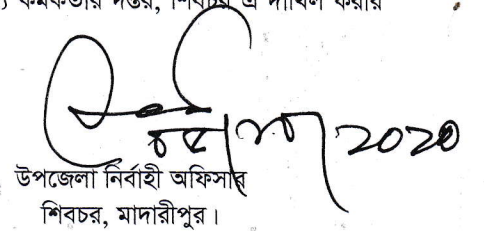 কর্মকর্তার দপ্তর, শিবচর এ দাখিল করার
২০২০
উপজেলা নির্বাহী অফিসার
শিবচর, মাদারীপুর।